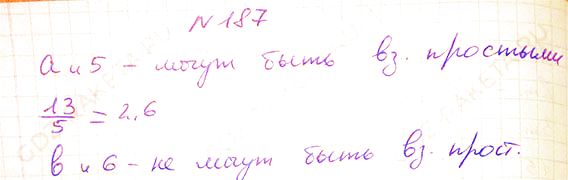 N 187
а и 5 - могут быть вз. простыми
13/5 = 2,6
в и 6 - не могут быть вз. прост.